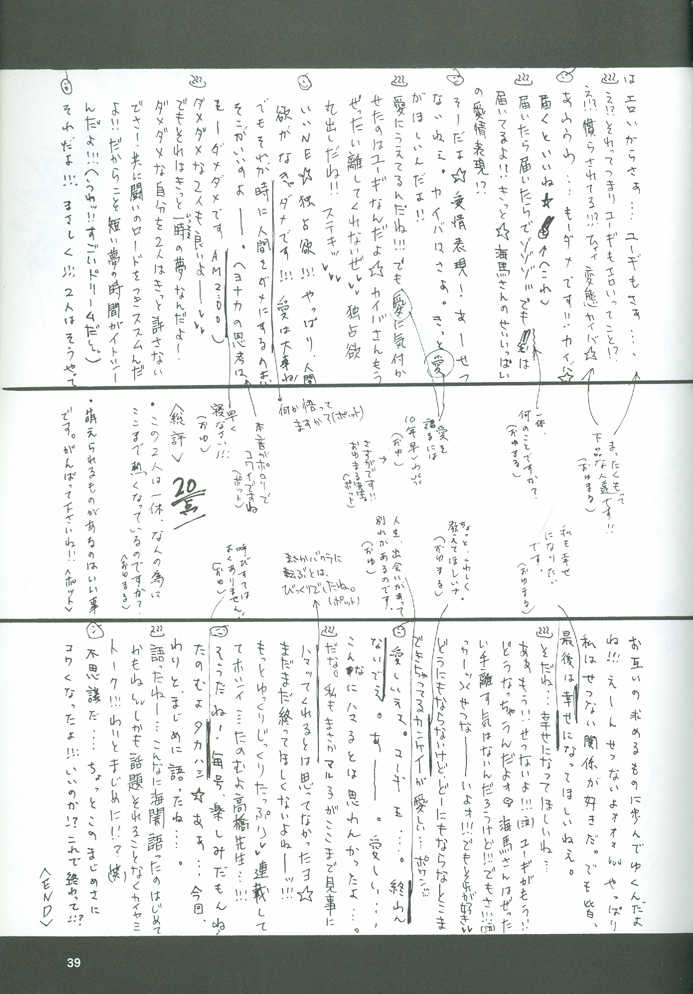 はエロいからさぁ…ユーギもさぁ…、
え!?それってつまりユーギもエロいってこと!?
え!!慣らされてる!!?ちょっ 変態カイバ☆
あわわわ…もーダメです!!カイバ☆
届くといいね☆ (へこれ)
届いたら届いたらでゾゾゾ でも 実は
届いてるよ!!きっと☆海馬さんのせいいっぱい
の愛情表現!?
そーだよ☆愛情表現!あーせつ
ないねぇ。カイバはさぁ。きっと愛
がほしいんだよ!!
愛にうえてるんだね!!!でも愛に気付か
せたのはユーギなんだよ☆カイバさんもう
ぜったい離してくれないぜ 独占欲
丸出しだね!!ステキ
いいNE☆独占欲!!!やっぱり人間
欲がなきゃダメです!!!愛は大事ね
でもそれが時に人間をダメにするのさ
そこがいいのよー。(ヨナカの思考は
もーダメダメです AM2:00)
ダメダメな2人も良いよー
でもそれはきっと一時の夢なんだよ!
ダメダメな自分を2人はきっと許さない
でさ!共に闘いのロードをつきススムんだ
よ!!だからこそ短い夢の時間がイトシー
んだよ!!!(うわッ!!すごいドリームだぁ)
それだよ!!!まさしく!!!2人はそうやって
まったくもって
下品な人達です!!
(おゆまる)
一体、
何のことですか?
(おゆまる)
愛を
語るには
10年早いわ!!
(おゆ)
さすがです!!
おゆまる様
(ポット)
何か悟って
ますか?(ポット)
本音がポロリで
コワイですね
(ポット)
早く
寝なさい!!!
(おゆ)
<総評> 20点
・この2人は一体、なんの為に
ここまで熱くなっているのですか?
<おゆまる>
・萌えられるものがあるのはいい事
です。がんばって下さいね!!<ポット>
私も幸せ
になりたい
です。
(おゆまる)
ちょっと、くわしく
教えてほしいナ
(おゆまる)
人生、出会いがあって
別れがあるのです。
(おゆ)
まさかバクラに
転ぶとは、
びっくりでしたね。
(ポット)
呼びすては
よくありません。
(おゆ)
お互いの求めるものに歩んでゆくんだよ
ね!!!えーんせつないよォォォ やっぱり
私はせつない関係が好きだ。でも皆、
最後は幸せになってほしいねぇ。
そだね…幸せになってほしいねー。
ああ、もう!!せつないよ!!!ユーギがもう!!
どうなっちゃうんだよォ 海馬さんはぜった
い手離す気はないんだろうけど!!でもさ!!!
っかーッ せつなーーいよォ!!!でもそれが好き
どうにもならないけどどーにもならなんとこま
できちゃってるカンケイが愛しい…ポワン
愛しいネェ。ユーギも…。終わん
ないでぇ。あーー。愛しい…、
こんなにハマるとは思わんかったよ…。
だな。私もまさかマルうがここまで見事に
ハマってくれるとは思ってなかったヨ☆
まだまだ終ってほしくないよねーッ!!!
もっとゆっくりじっくりたっぷり 連載して
てホシイ…たのむよ高橋先生…!!!
そうだね!毎号、楽しみだもんね
たのむよタカハシ☆あぁ…今回、
わりとまじめに語ったね…。
語ったねー…こんなに海闇語ったのはじめて
かもねしかも話題それることなくカイヤミ
トーク!!!わりとまじめに!!?(笑)
不思議だ…ちょっとこのまじめさに
コワくなったよ!!!いいのか!?これで終わって!!?
<END>
39